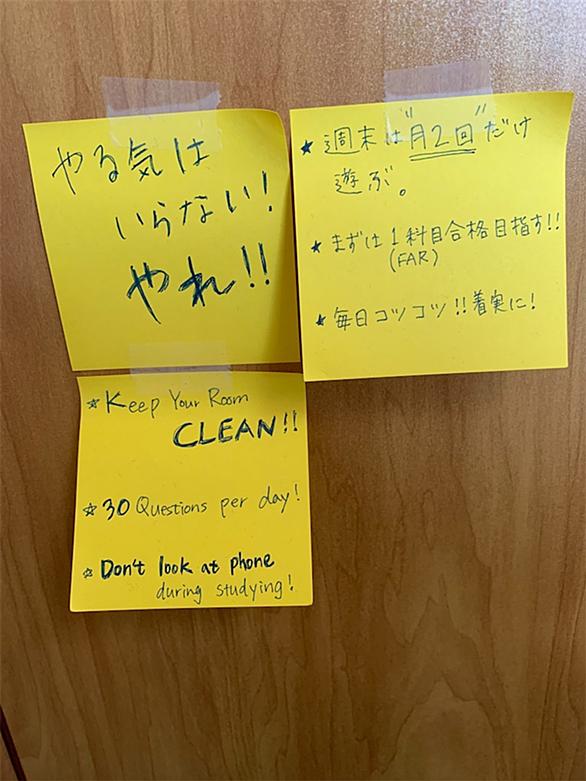 やる気は
いらない!
やれ!!
★ 週末は"月2回"だけ
遊ぶ。
★ まずは1科目合格目指す!!
(FAR)
★ 毎日コツコツ!!着実に!
☆ Keep Your Room
CLEAN!!
☆ 30 Questions per day!
☆ Don't look at phone
during studying!